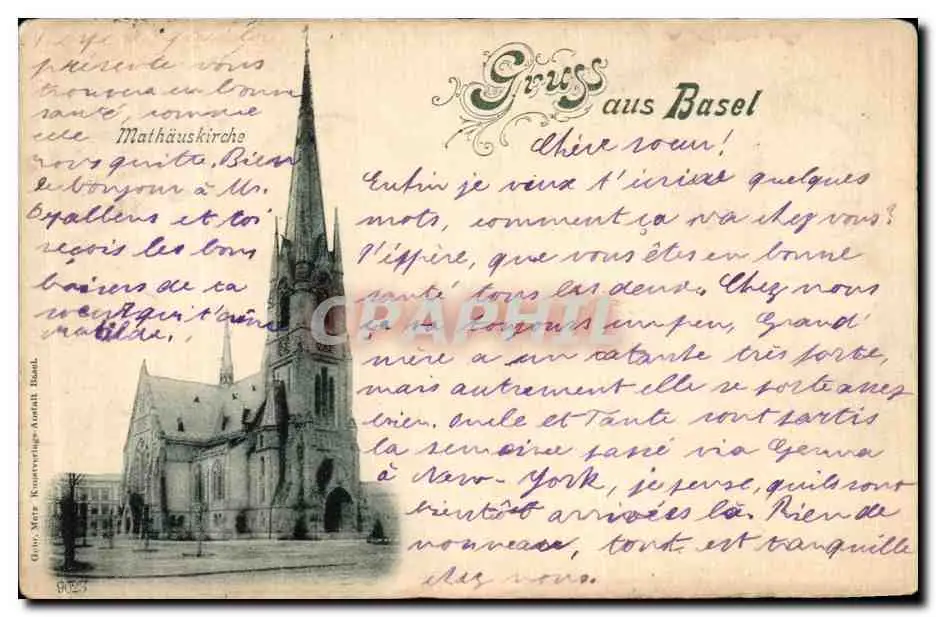 Gruss aus Basel
Mathäuskirche
Chère soeur!
Enfin je veux t'écrire quelques
mots, comment ça va chez vous?
J'éspère, que vous êtes en bonne
santé tous les deux. Chez nous
ça va toujours un peu, Grand'
mère a un très forte,
mais autrement elle se porte assez
bien. Oncle et Tante sont partis
la semaine passé via Genua
à New-York, je pense, qu'ils sont
bientôt arrivées là. Rien de
nouveau, tout est tranquille
chez nous.
présente vous
trouvera en bonne
santé, comme
elle
nous quitte. Bien
le bonjour à Mr.
et toi
reçois les bons
baisers de ta
soeur qui t'aime
Matilde.
CPARPHIL
Gebr. Metz Kunstverlags-Anstalt Basel.
9023